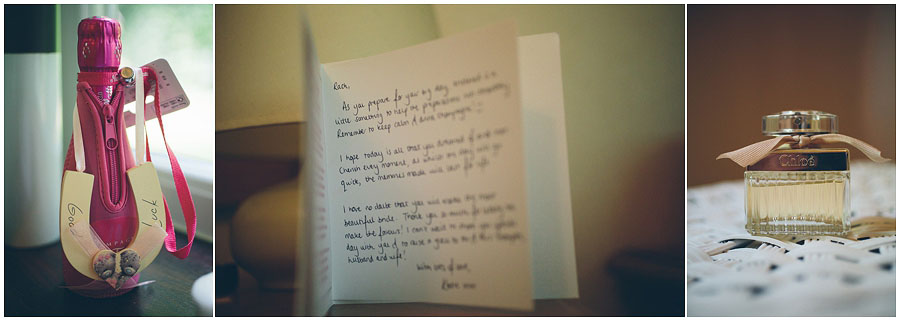 Good
luck
Rach,
As you prepare for your big day, enclosed is a
little something to help the preparations run smoothly.
Remember to keep calm & drink champagne!
I hope today is all that you dreamed of and more.
Cherish every moment, as whilst the day will go
quick, the memories made will last for life.
I have no doubt that you will make the most
beautiful bride. Thank you so much for letting me
make the favours! I can't wait to share your
day with you & to raise a glass to
husband and wife!
With lots of love,
xxx
Chloé